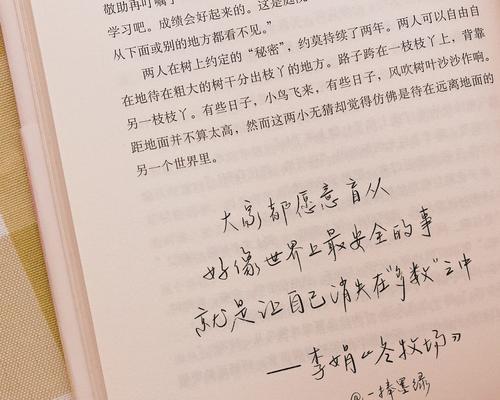 敬助再叮嘱
学习吧。成绩会好起来的。这是庭院
从下面或别的地方都看不见。”
两人在树上约定的“秘密”，约莫持续了两年。两人可以自由自
在地待在粗大的树干分出枝丫的地方。路子跨在一枝枝丫上，背靠
另一枝枝丫。有些日子，小鸟飞来，有些日子，风吹树叶沙沙作响。
距地面并不算太高，然而这两小无猜却觉得仿佛是待在远离地面的
另一个世界里。
大家都愿意盲从
好像世界上最安全的事
就是让自己消失在“多数”之中
——李娟《冬牧场》
@一捧墨绿